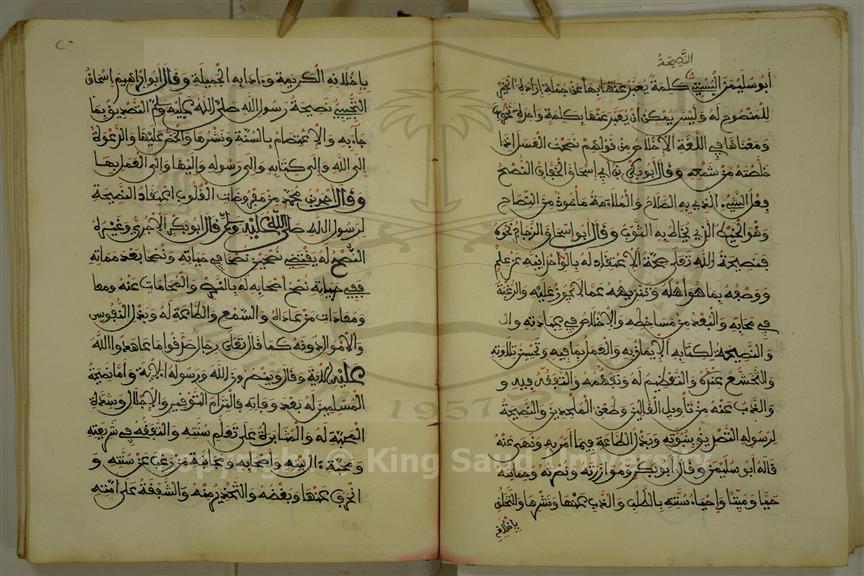 النصيحة
أبو سليمن البستي كلمة يعبر عنها بها عن جملة إرادة الخير
للمنصوح له وليس يمكن أن يعبر عنها بكلمة واحدة تحصرها
ومعناها في اللغة الإخلاص من قولهم نصحت العسل إذا
خلصته من شمعه وقال أبو بكر بن أبي إسحاق الخفاف النصح
فعل الشيء الذي به الصلاح والملاءمة مأخوذ من النصاح
وهو الخيط الذي يخاط به الثوب وقال أبو إسحاق الزجاج نحوه
فنصيحة الله تعلى صحة الاعتقاد له بالواحدانية
ووصفه بما هو أهله وتنزيهه عما لا يجوز عليه والرغبة
في محابه والبعد من مساخطه والإخلاص في عبادته
والنصيحة لكتابه الإيمان به والعمل بما فيه وتحسين تلاوته
والتخشع عنده والتعظيم له وتفهمه والتفقه فيه و
والذب عنه من تأويل الغالين وطعن الملحدين والنصيحة
لرسوله التصديق بنبوته وبذل الطاعة فيما أمر به ونهى عنه
قاله أبو سليمن وقال أبو بكر وموازرته ونصرته وحمايته
حيا وميتا وإحياء سنته بالطلب والذب عنها ونشرها والتخلق
بأخلاقه
بأخلاقه الكريمة وءادابه الجميلة وقال أبو إبراهيم إسحاق
التجيبي نصيحة رسول الله صلى الله عليه وسلم التصديق بما
جاء به والاعتصام بالسنة ونشرها والحض عليها والدعوة
إلى الله وإلى كتابه وإلى رسوله وإليها وإلى العمل بها
وقال أحمد بن محمد من مفروضات القلوب اعتقاد النصيحة
لرسول الله صلى الله عليه وسلم قال أبو بكر الآجري وغيره
النصح له يقتضي نصحين نصحا في حياته ونصحا بعد مماته
ففي حياته نصح أصحابه له بالنصر والمحاماة عنه
ومعادات من عاداه والسمع والطاعة له وبذل النفوس
والأموال دونه كما قال تعلى رجال صدقوا ما عاهدوا الله
عليه الآية وقال وينصرون الله ورسوله الآية وأما نصيحة
المسلمين له بعد وفاته فالتزام التوقير والإجلال وشدة
المحبة له والمثابرة على تعلم سنته والتفقه في شريعته
ومحبة ءال بيته وأصحابه ومجانبة من رغب عن سنته و
انحرف عنها وبغضه والتحذير منه والشفقة على أمته
1957
Copyright © King Saud University